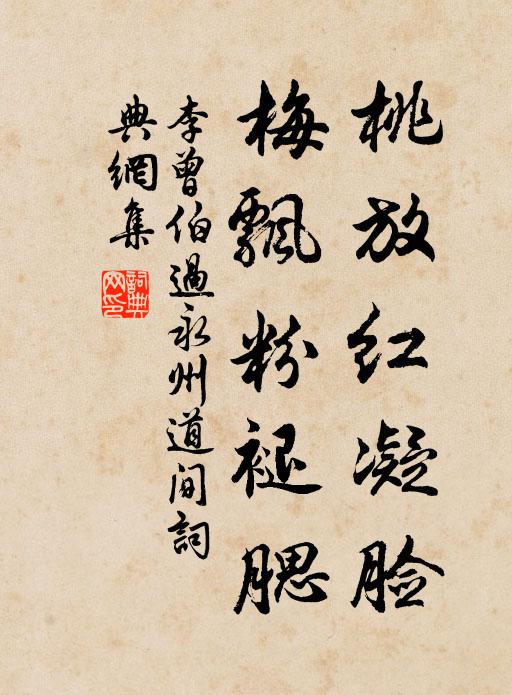 桃放红凝脸
梅飘粉褪腮
李曾伯過永州道间詞
典網集
詞典网印